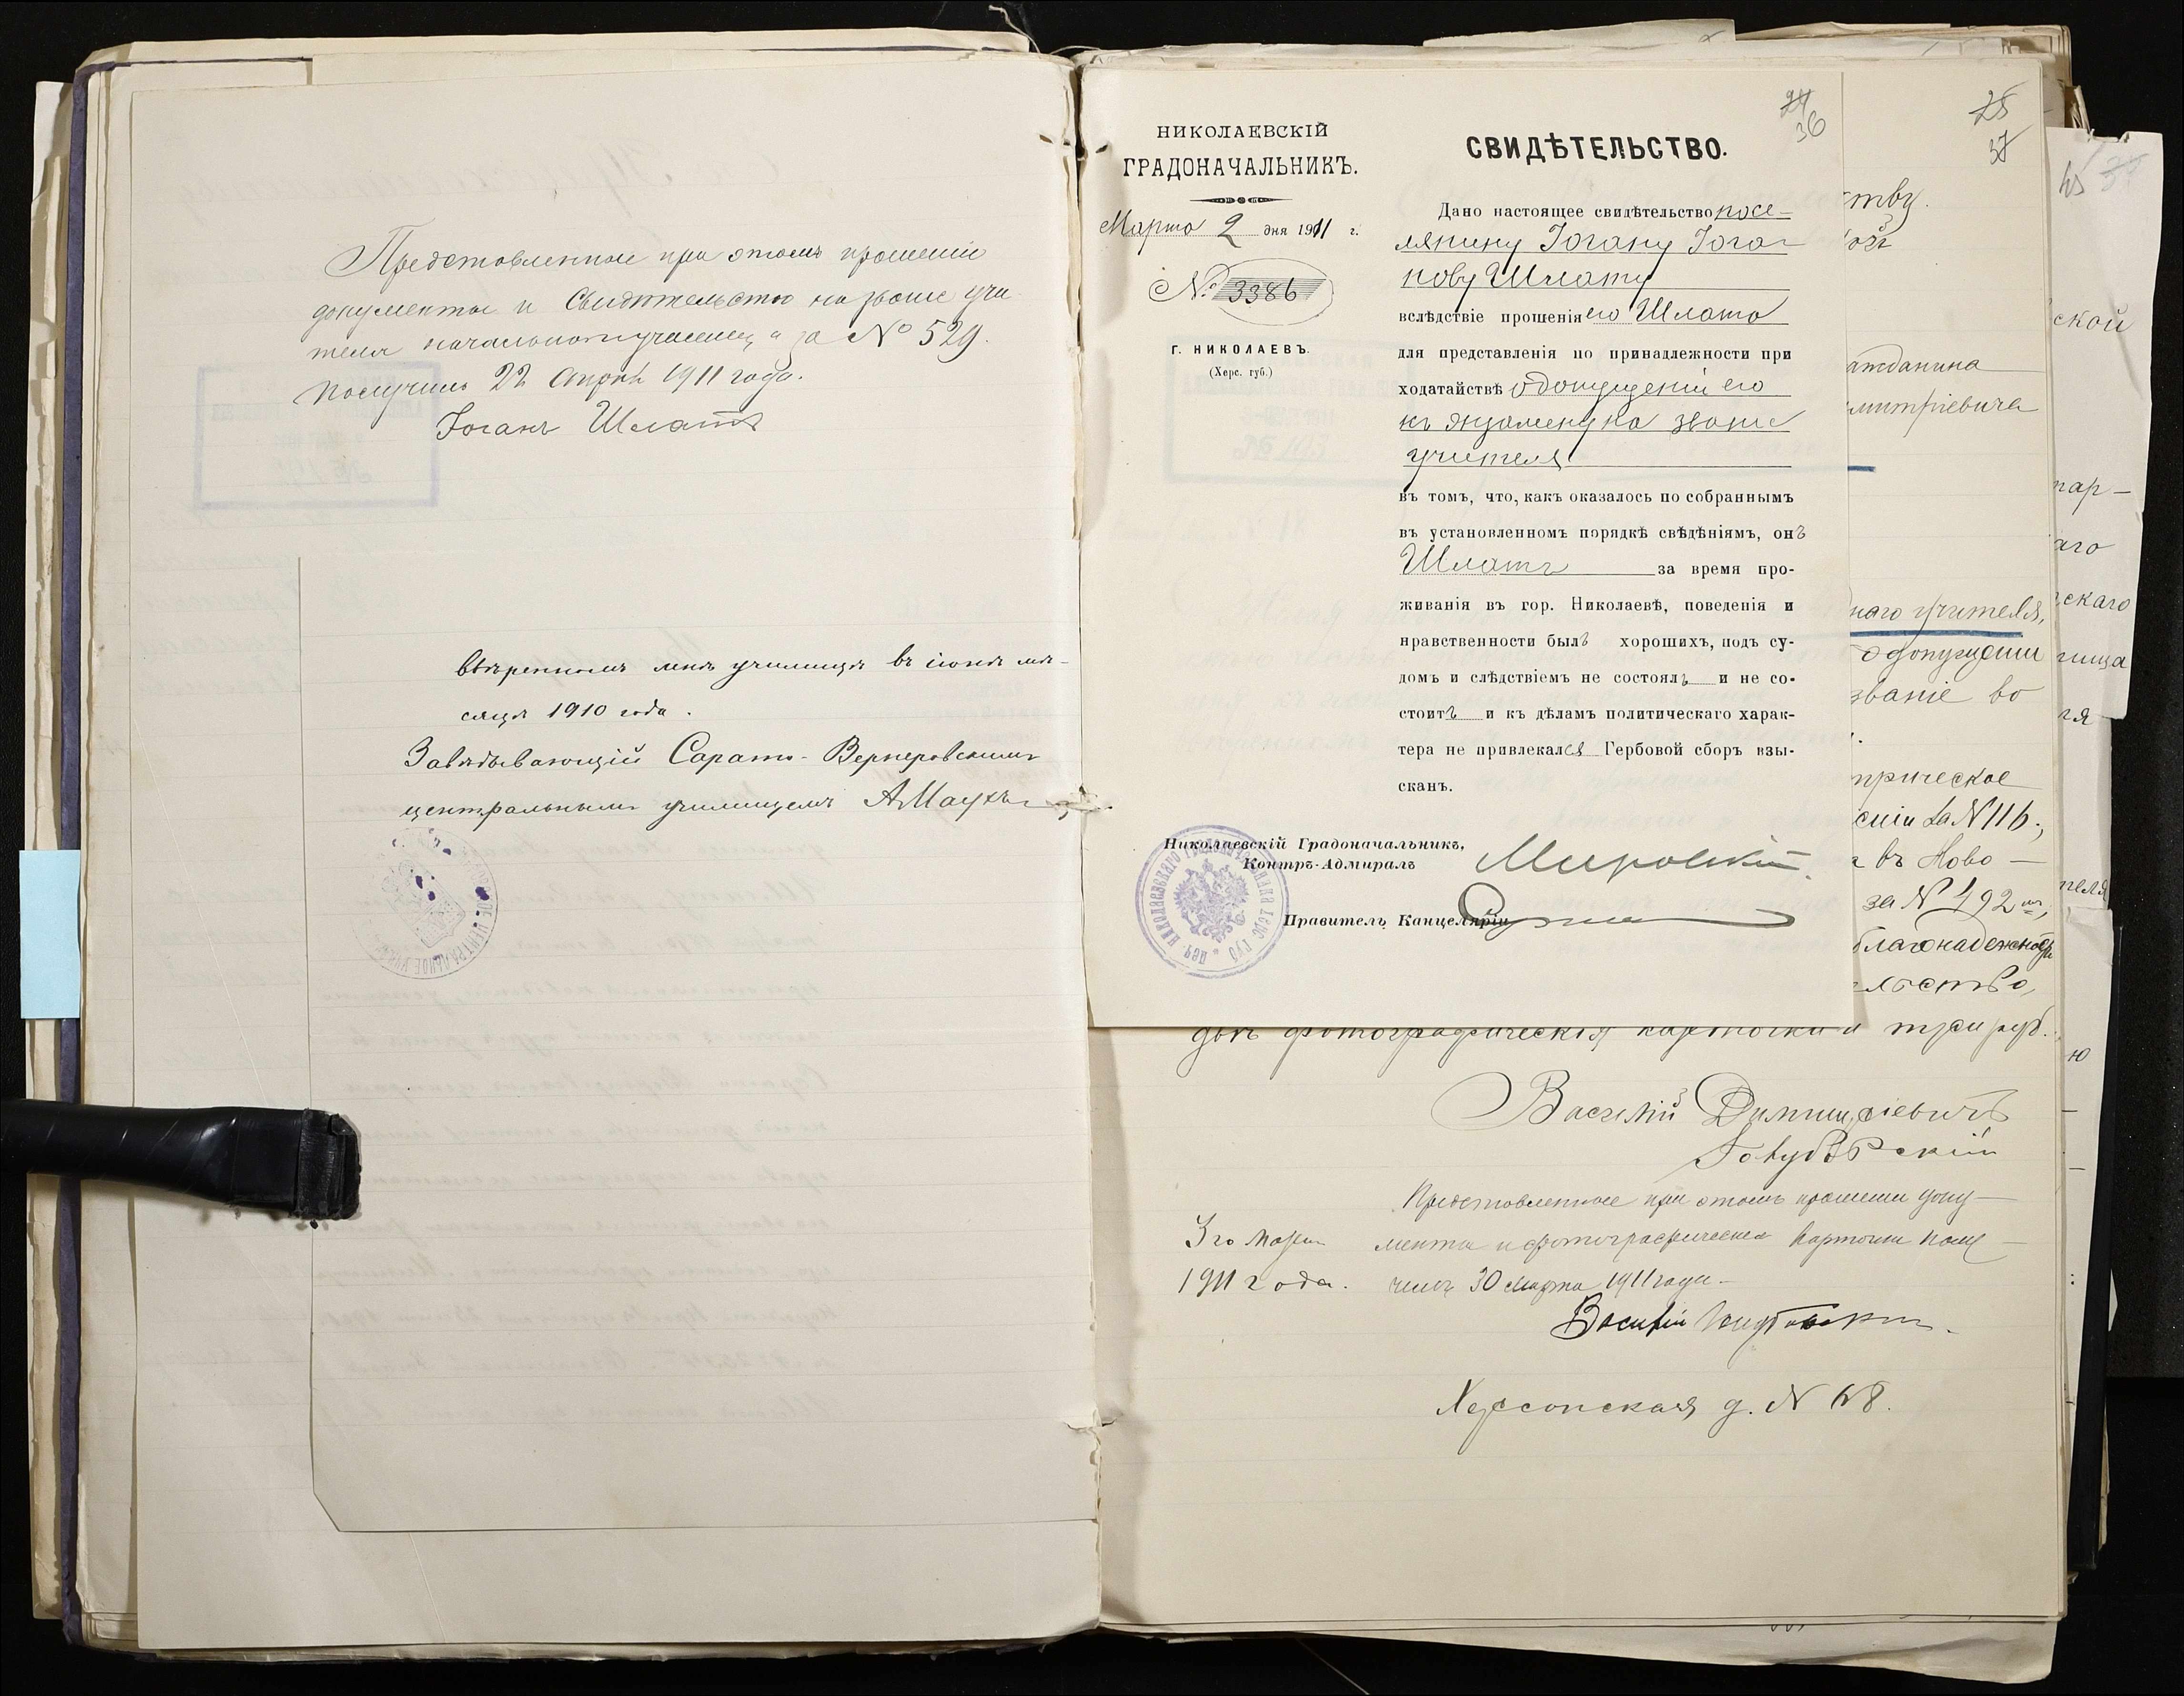 Представленные при этомъ прошеніи
документы и Свидѣтельство на званіе учи
теля начальнаго училища за № 529.
получилъ 22 Апрѣля 1911 года.
Іоганъ Шлатъ
ввѣренномъ мнѣ училищѣ въ іюнѣ мѣ-
сяцѣ 1910 года.
Завѣдывающій Сарато-Вернеровскимъ
центральнымъ училищемъ А. Маухъ
24
36
НИКОЛАЕВСКІЙ
ГРАДОНАЧАЛЬНИКЪ.
Марта 2 дня 1911 г.
№ 3386
Г. НИКОЛАЕВЪ.
(Херс. губ.)
СВИДѢТЕЛЬСТВО.
Дано настоящее свидѣтельство посе-
лянину Іогану Іога-
нову Шлату
вслѣдствіе прошенія его Шлата
для представленія по принадлежности при
ходатайствѣ о допущеніи его
къ экзамену на званіе
учителя
въ томъ, что, какъ оказалось по собраннымъ
въ установленномъ порядкѣ свѣдѣніямъ, онъ
Шлатъ за время про-
живанія въ гор. Николаевѣ, поведенія и
нравственности былъ хорошихъ, подъ су-
домъ и слѣдствіемъ не состоялъ и не со-
стоитъ и къ дѣламъ политическаго харак-
тера не привлекался Гербовой сборъ взы-
сканъ.
Николаевскій Градоначальникъ,
Контръ-Адмиралъ
Правитель Канцеляріи
25
37
ству.
атданина
митріевича
наго учителя,
о допущеніи
званіе во
трическое
сніи за N 116;
въ Ново-
за N 492
благонадежно
льство,
двѣ фотографическія карточки и три руб.
Василій Димитріевичъ
Представленные при этомъ прошеніи доку-
3го Марта
менты и фотографическія карточки полу-
1911 года.
чилъ 30 Марта 1911 года.
Василій
Херсонская д. N 68.
ской
тар-
аго
скаго
лища
ля
теля
ю